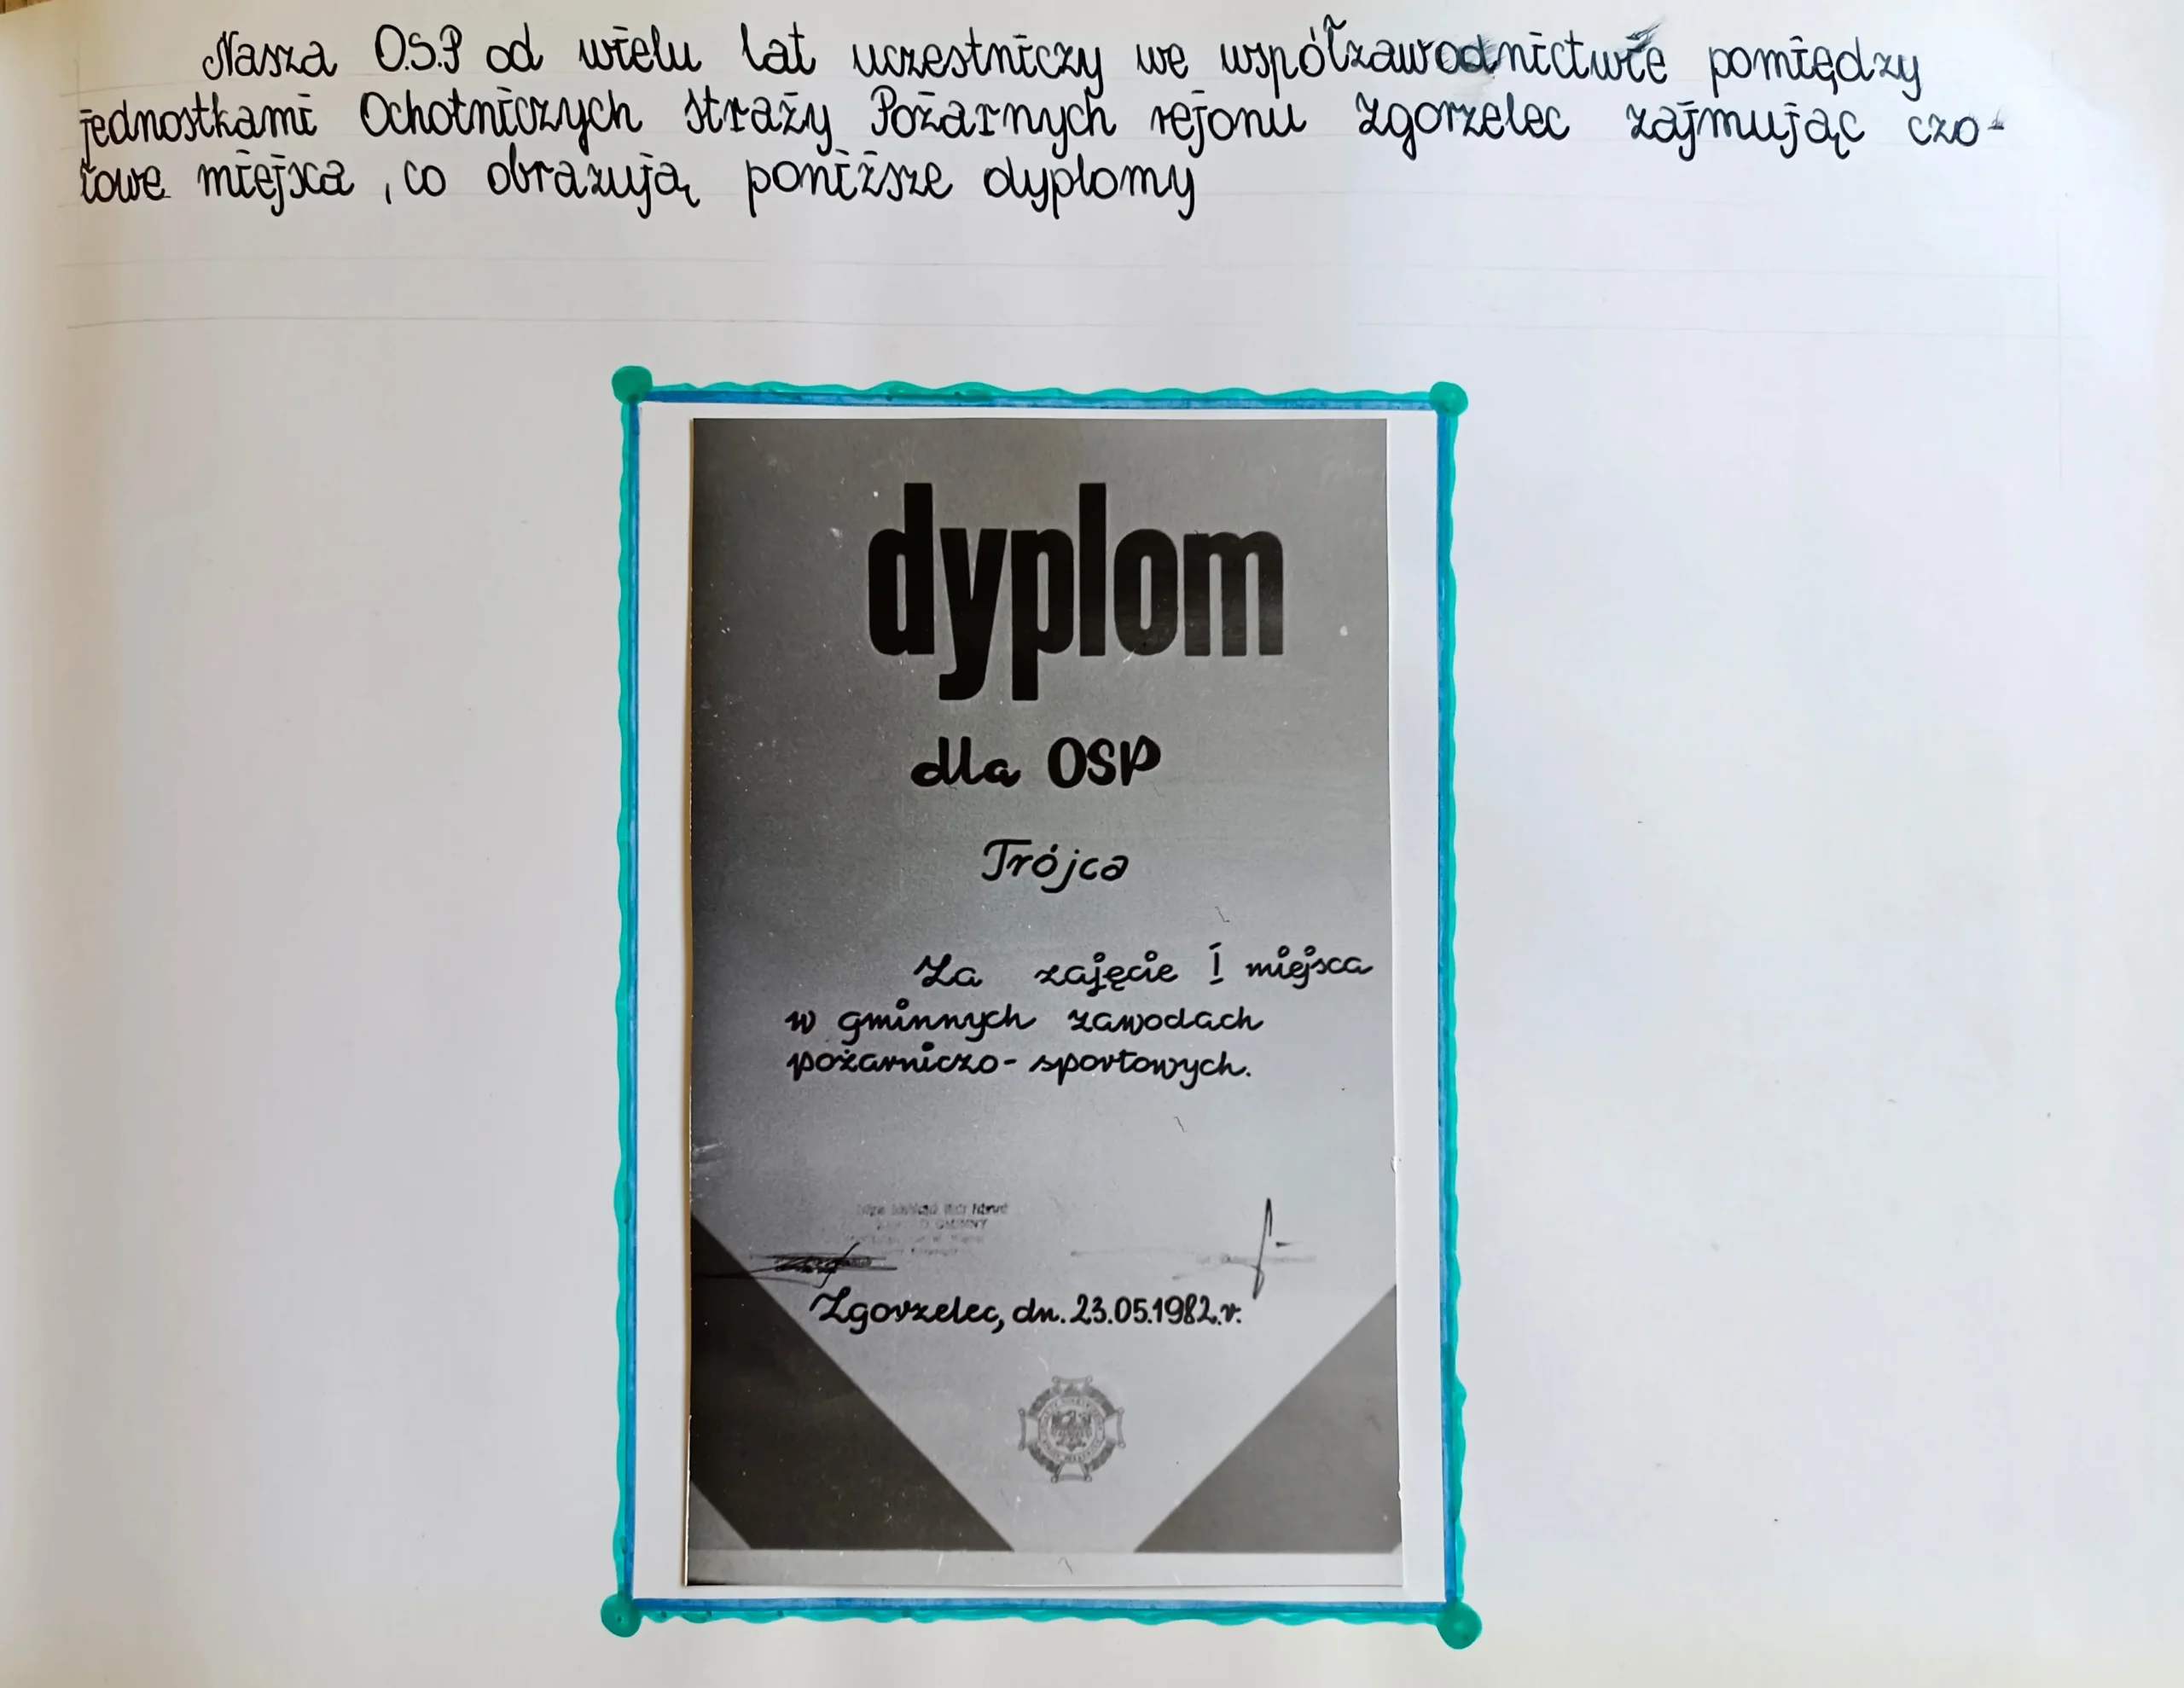 Nasza O.S.P od wielu lat uczestniczy we współzawodnictwie pomiędzy
jednostkami Ochotniczych Straży Pożarnych rejonu Zgorzelec zajmując czo-
łowe miejsca , co obrazują poniższe dyplomy
dyplom
dla OSP
Trójca
Za zajęcie I miejsca
w gminnych zawodach
pożarniczo-sportowych.
GMINNY
Zgorzelec, dn. 23.05.1982.r.